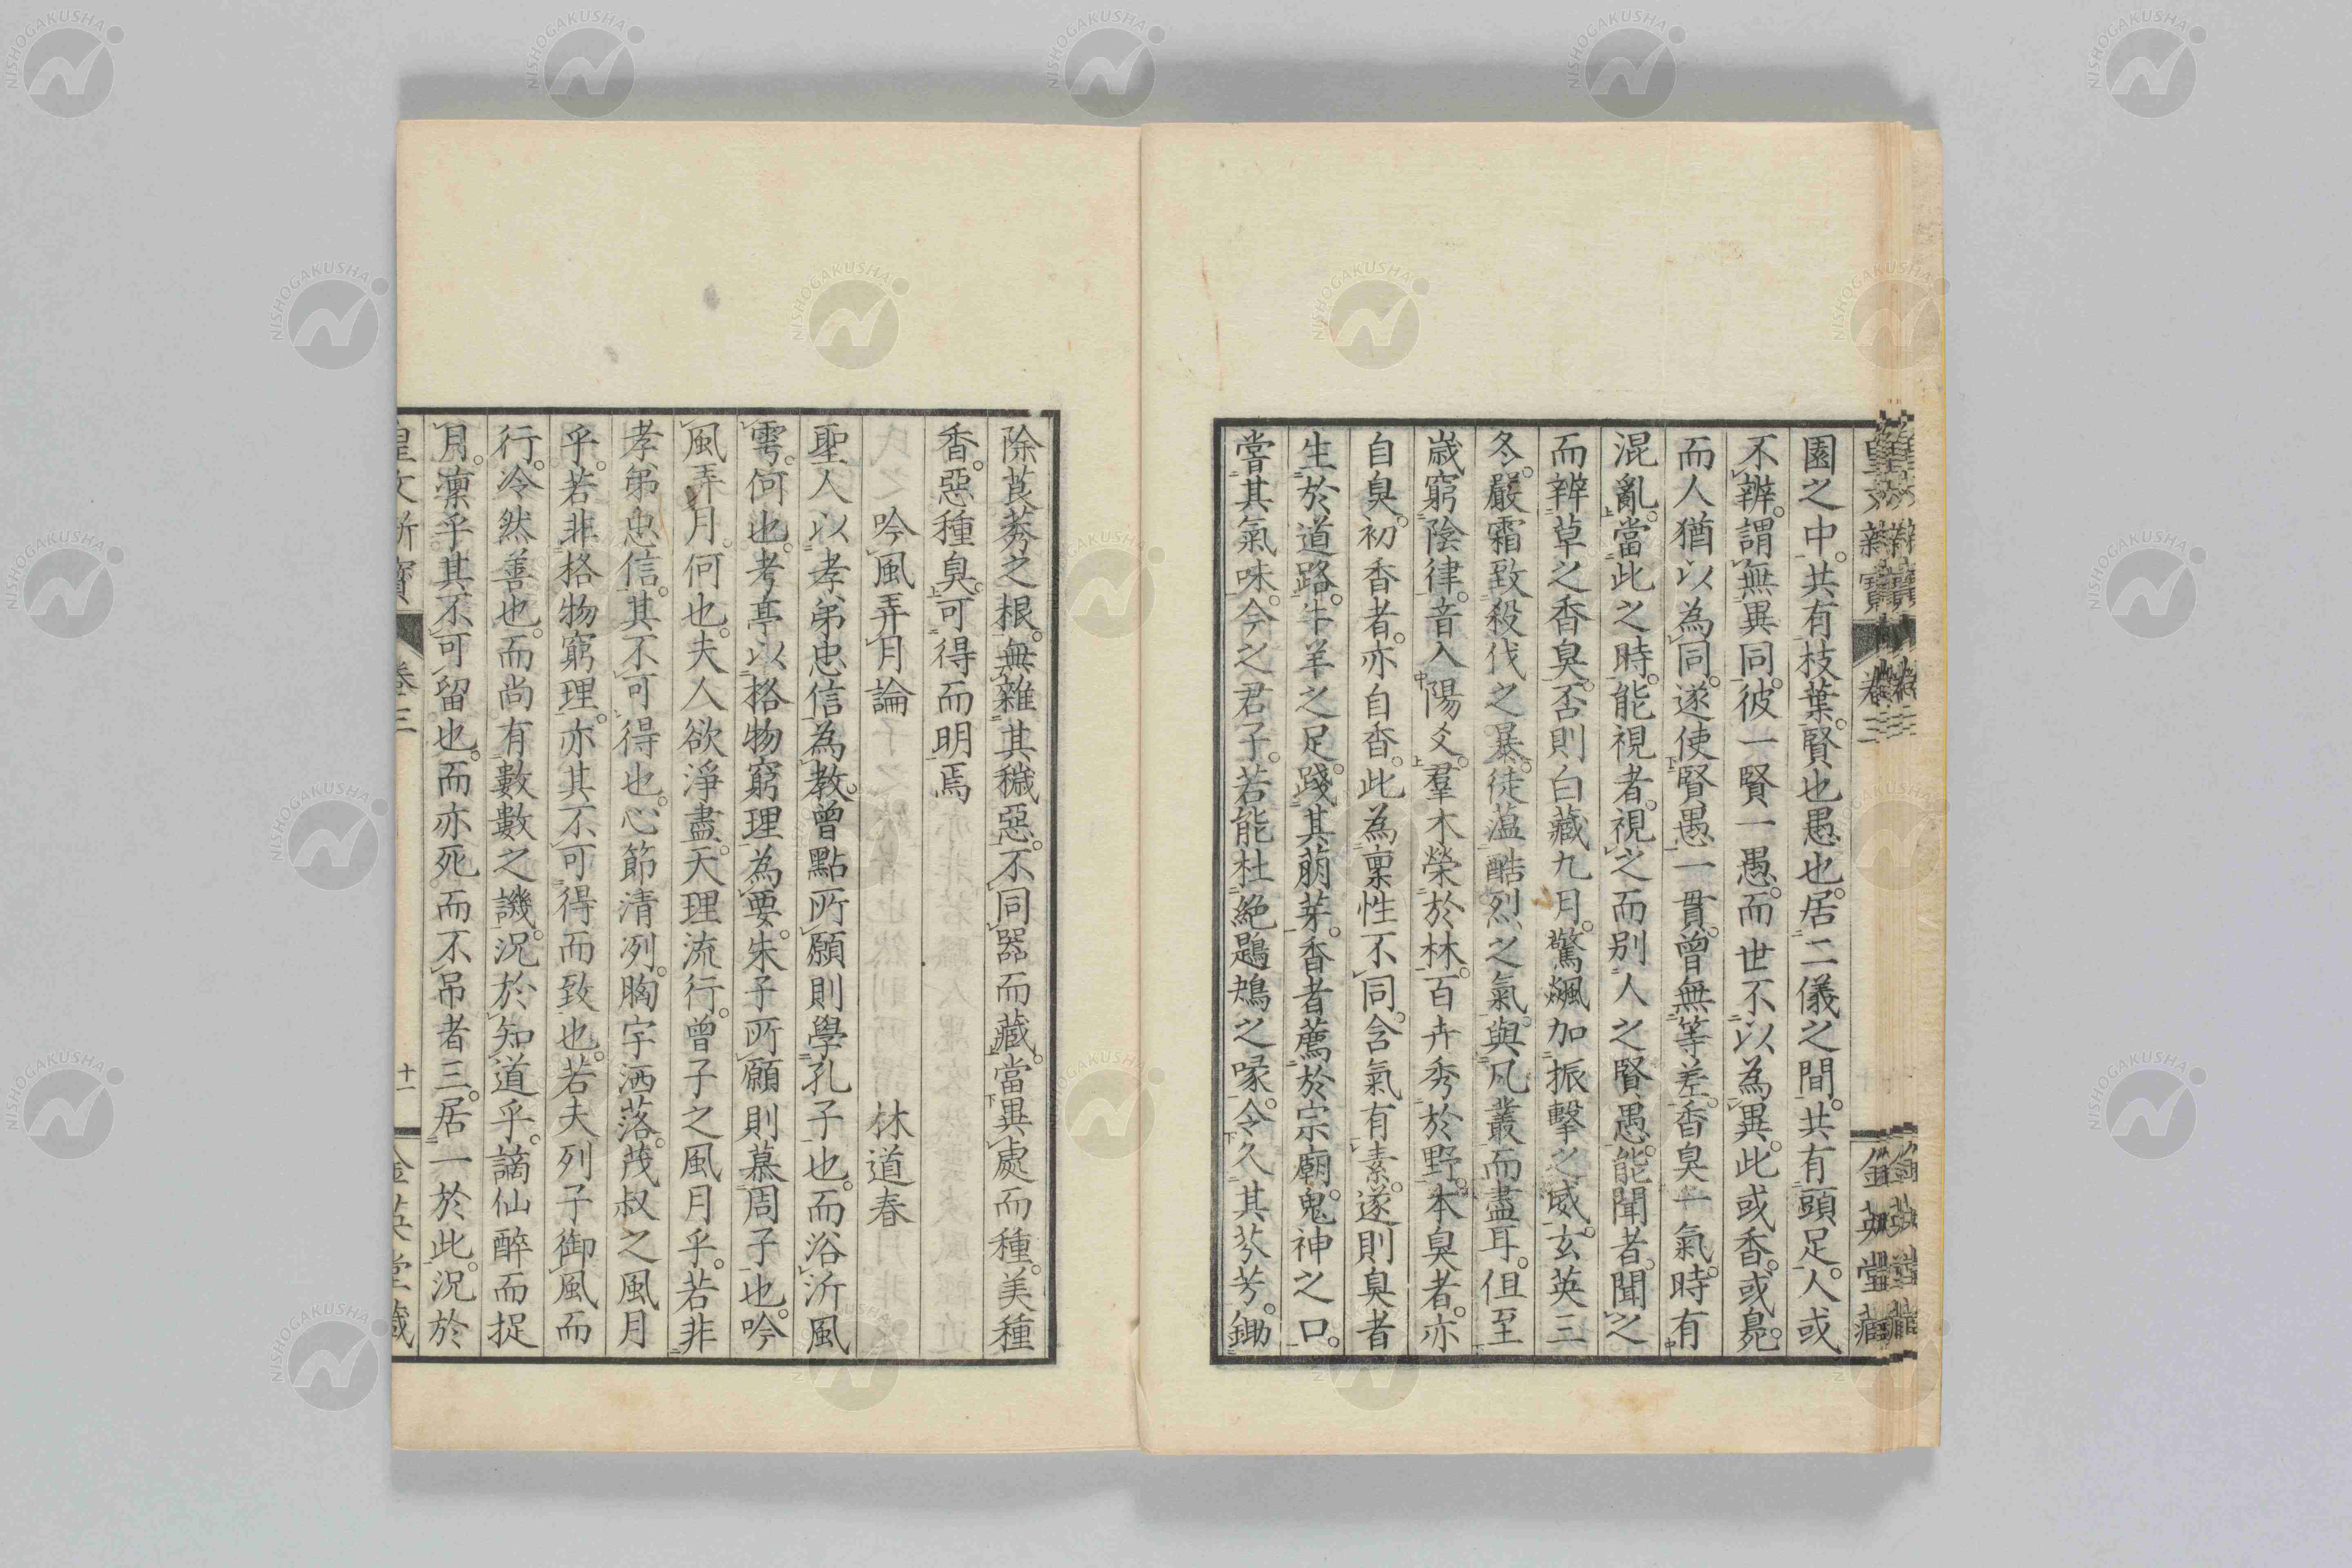 園之中。共有枝葉。賢也愚也。居二儀之間。共有頭足。人或
不辨。謂無異同。彼一賢一愚。而世不以為異。此或香。或臰。
而人猶以為同。遂使賢愚一貫。曾無等差。香臭一氣。時有
混亂。當此之時。能視者。視之而別人之賢愚。能聞者。聞之
而辨草之香臭。否則白藏九月。驚飆加振擊之威。玄英三
冬。嚴霜致殺伐之暴。徒薀酷烈之氣。與凡叢而盡耳。但至
歳窮陰律。音入陽爻。羣木榮於林。百卉秀於野。本臭者。亦
自臭。初香者。亦自香。此為稟性不同。含氣有素。遂則臭者
生於道路。牛羊之足踐其萌芽。香者薦於宗廟。鬼神之口。
嘗其氣味。今之君子。若能杜絶鶗鴂之喙。令久其芬芳。鋤
除莨莠之根。無雜其穢惡。不同器而藏。當異處而種。美種
香。惡種臭。可得而明焉
吟風弄月論 林道春
聖人以孝弟忠信為教。曾點所願則學孔子也。而浴沂風
雩。何也。考亭以格物窮理為要。朱子所願則慕周子也。吟
風弄月。何也。夫人欲淨盡。天理流行。曾子之風月乎。若非
孝弟忠信。其不可得也。心節清冽。胸宇洒落。茂叔之風月
乎。若非格物窮理。亦其不可得而致也。若夫列子御風而
行。冷然善也。而尚有數數之譏。況於知道乎。謫仙醉而捉
月。凛乎其不可留也。而亦死而不吊者三。居一於此。況於
卷三
十一